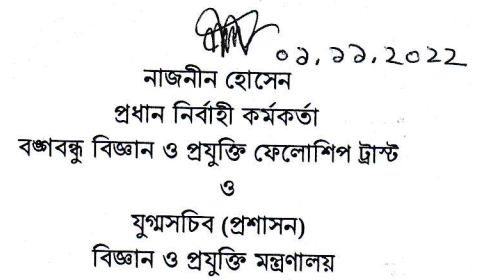 ০১.১১.2022
নাজনীন হোসেন
প্রধান নির্বাহী কর্মকর্তা
বঙ্গবন্ধু বিজ্ঞান ও প্রযুক্তি ফেলোশিপ ট্রাস্ট
ও
যুগ্মসচিব (প্রশাসন)
বিজ্ঞান ও প্রযুক্তি মন্ত্রণালয়